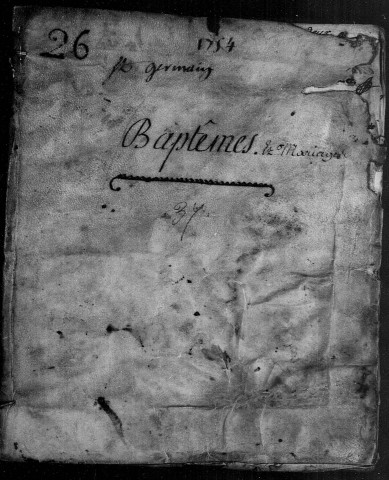 26
1754
st germain
Baptêmes. Et Mariages
37